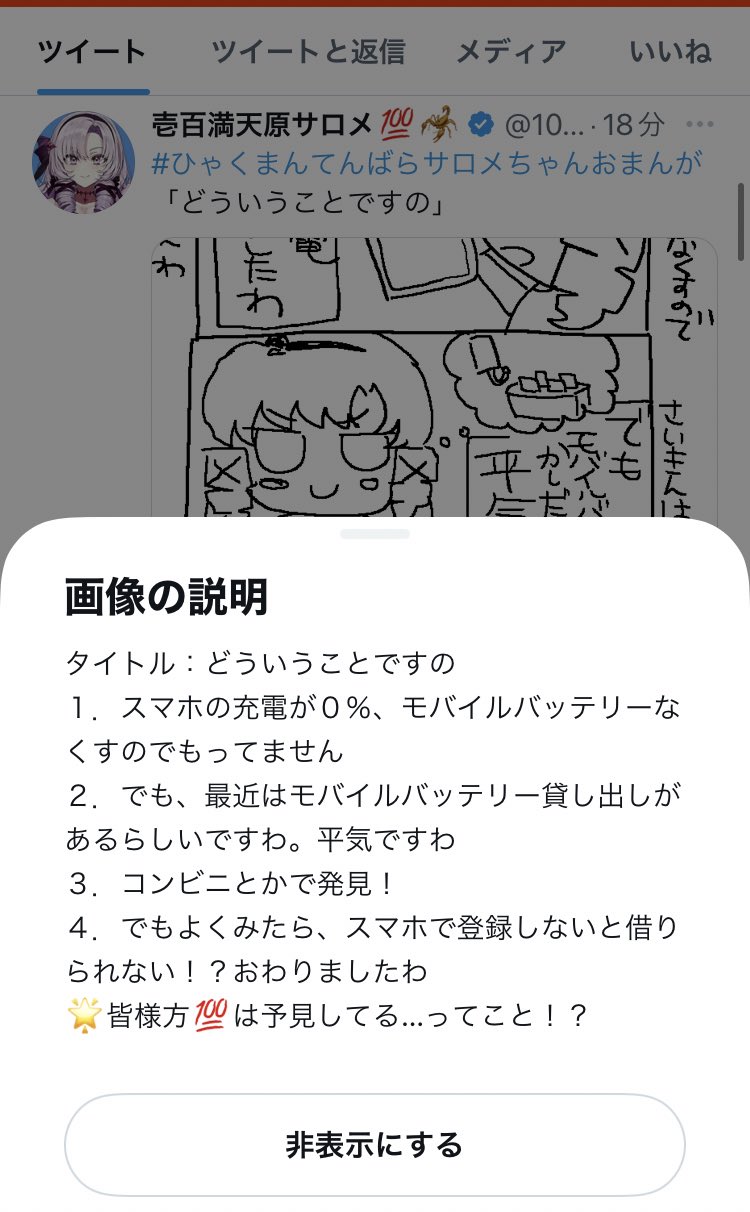 ツイート ツイートと返信 メディア いいね
壱百満天原サロメ💯🦂 @10... · 18分
#ひゃくまんてんばらサロメちゃんおまんが
「どういうことですの」
したわ
なくすので
さいきんは
でも
モバイルバ
かしだ
平気
画像の説明
タイトル：どういうことですの
１．スマホの充電が０％、モバイルバッテリーな
くすのでもってません
２．でも、最近はモバイルバッテリー貸し出しが
あるらしいですわ。平気ですわ
３．コンビニとかで発見！
４．でもよくみたら、スマホで登録しないと借り
られない！？おわりましたわ
🌟皆様方💯は予見してる...ってこと！？
非表示にする